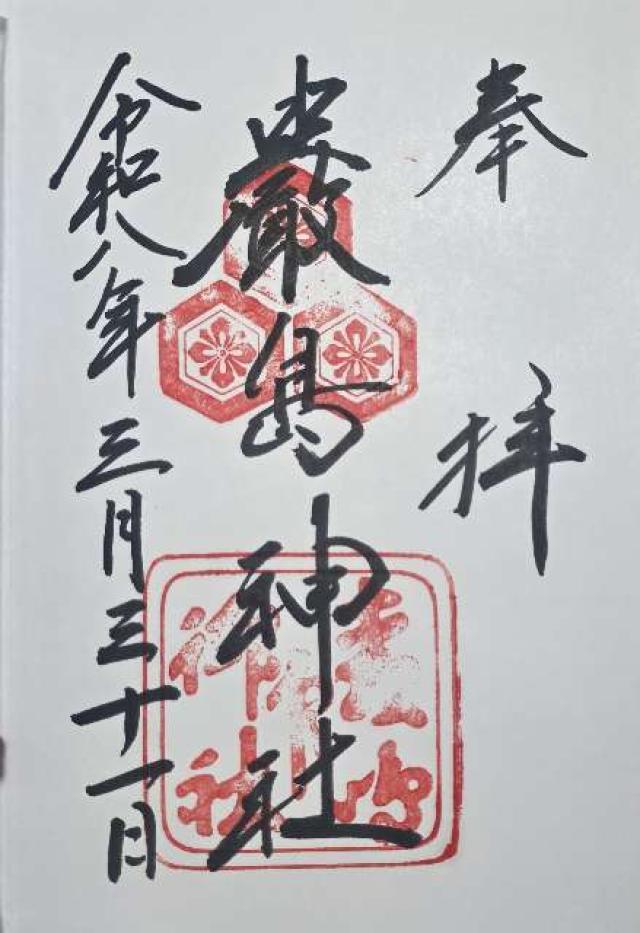 奉拝
嚴島神社
令和八年三月三十一日